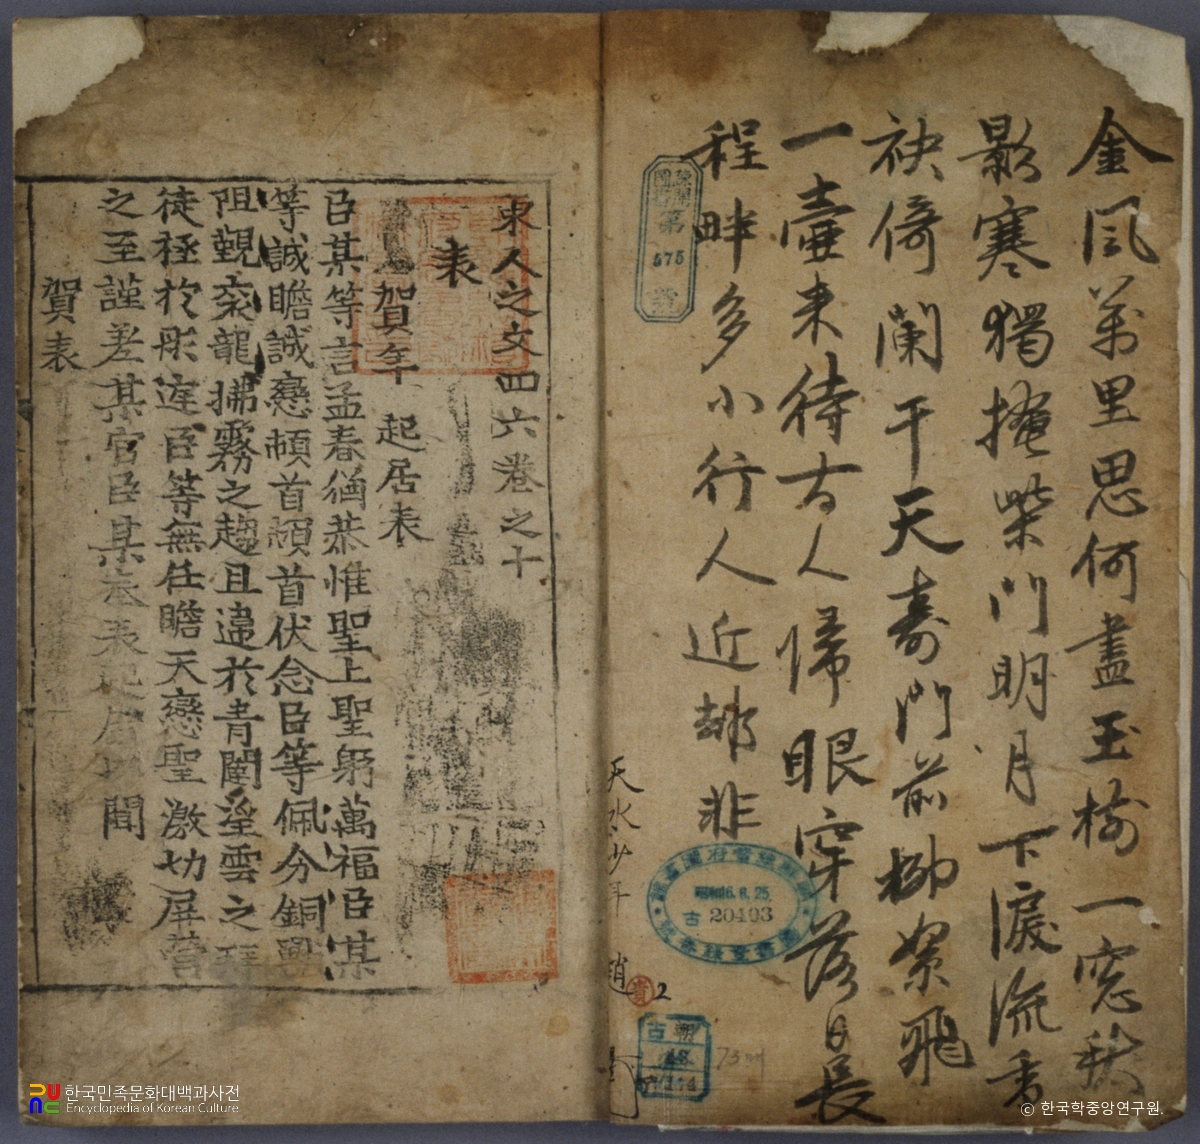 金風万里思何盡玉樹一窓秋
影寒獨掩柴門明月下淚流香
袂倚闌干天壽門前柳絮飛
一壺来待古人帰眼穿落日長
程畔多小行人近却非
天水少年 趙
第
575
號
昭和16.6.25
古 20403
貴
2
古 朝
48
73매
東人之文四六卷之十
表
賀年 起居表
臣某等言孟春猶恭惟聖上聖躬萬福臣某
等誠瞻誠戀頓首頓首伏念臣等佩分銅
阻覲衮龍拂霧之趨且違於青闈瀅雲之拜
徒極於彤庭臣等無任瞻天戀聖激切屏營
之至謹差某官臣某奉表起居以聞
賀表
한국민족문화대백과사전
Encyclopedia of Korean Culture
© 한국학중앙연구원.